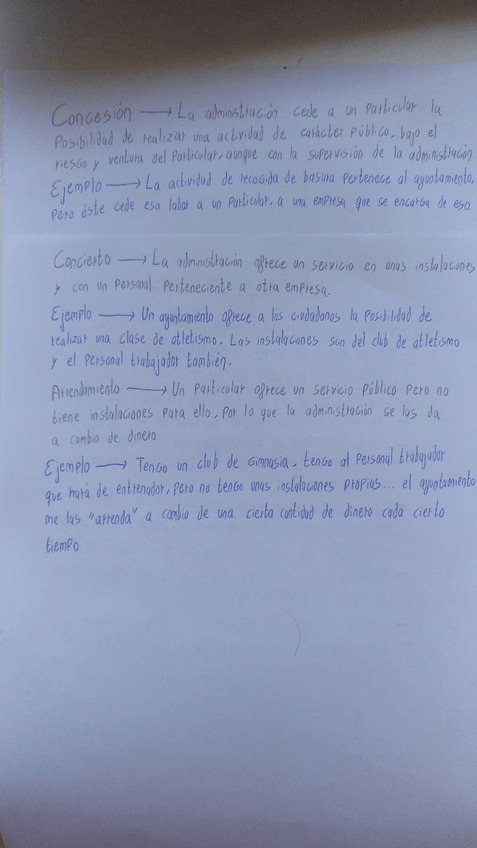 Concesión → La administración cede a un particular la
posibilidad de realizar una actividad de carácter público, bajo el
riesgo y ventura del particular, aunque con la supervisión de la administración
Ejemplo → La actividad de recogida de basura pertenece al ayuntamiento,
pero éste cede esa labor a un particular, a una empresa que se encarga de eso.
Concierto → La administración ofrece un servicio en unas instalaciones
y con un personal perteneciente a otra empresa.
Ejemplo → Un ayuntamiento ofrece a los ciudadanos la posibilidad de
realizar una clase de atletismo. Las instalaciones son del club de atletismo
y el personal trabajador también.
Arrendamiento → Un particular ofrece un servicio público pero no
tiene instalaciones para ello, por lo que la administración se las da
a cambio de dinero
Ejemplo → Tengo un club de gimnasia, tengo al personal trabajador
que hará de entrenador, pero no tengo unas instalaciones propias... el ayuntamiento
me las "arrenda" a cambio de una cierta cantidad de dinero cada cierto
tiempo